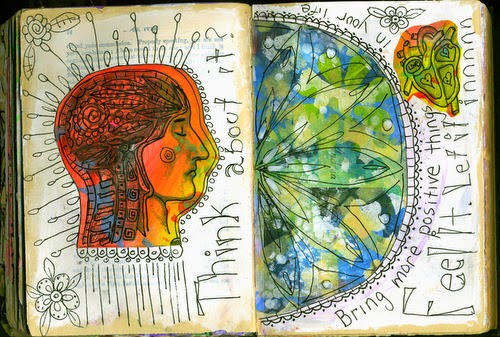 Think about it.
Bring more positive things in your life
Feel It Yet